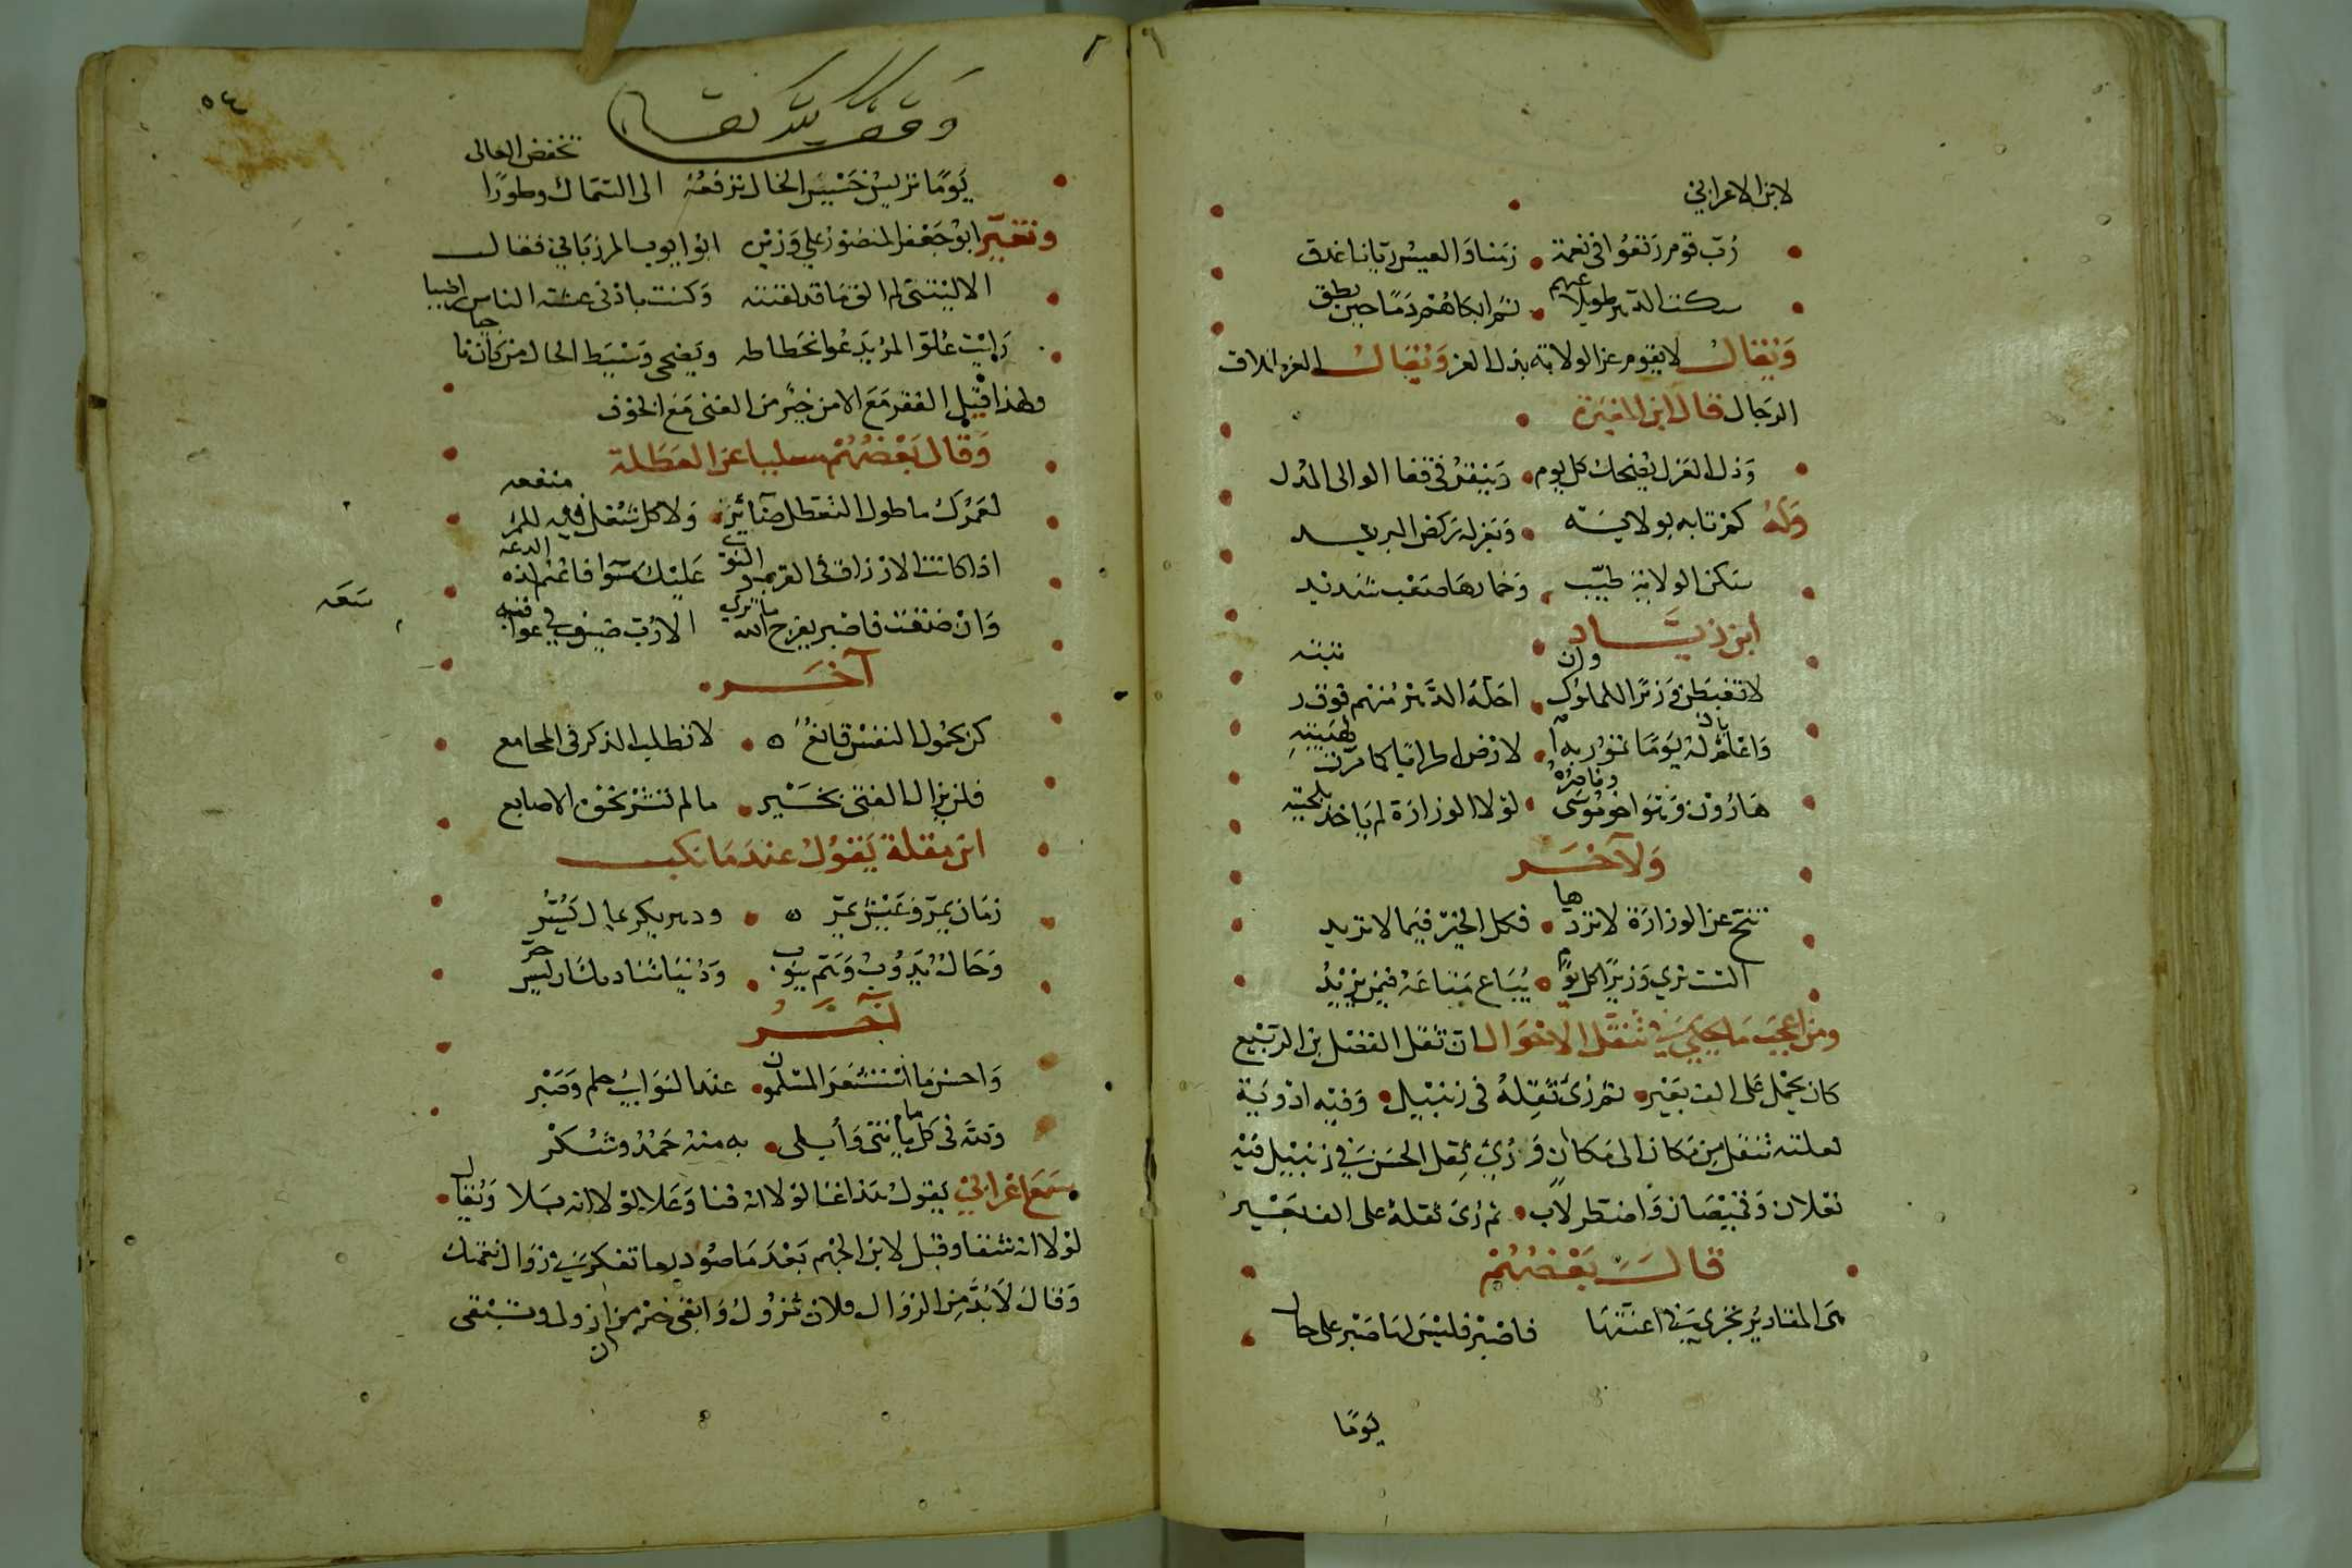 لابن الاعرابي
رُبّ قوم رتعوا في نعمة • زمنا والعيش ريّانا غدق
سكت الدهر طويلا عنهم • ثم ابكاهم دمًا حين نطق
وَيُقالُ لا يقوم عز الولاية بذل العزل وَيُقالُ العزل طلاق
الرجال قال ابن المغيرة
وَذل العزل يضحك كل يوم • وَينقر في قفا الوالي المدل
وَلَهُ كم تايه بولاية • وَبعزله ركض البريد
سكر الولاية طيّب • وَخمارها صعب شديد
ابن زيَّاد
لا تغبطن وَزيرًا للملوك وان • احله الدّهر منهم فوق رتبته
وَاعلم بان له يَومًا تمور به ا • لارض كما مرّت لهيبته
هَارُوْن وَهْوَ اخو مُوسَى وناصره • لوْلا الوزارة لم يَاخذ بلحيته
وَلآخَر
تنحّ عن الوزارة لا تردها • فكل الخيْر فيَما لا تريد
الست تري وَزيرًا كل يوْم • يُبَاع متاعَهُ فيمن يَزِيْدُ
ومن اعجب مَا حكي في تنقل الاحْوَال ان ثقل الفضل بن الرّبيْع
كان يحْمل على الف بعَيْر • ثم رُئ ثقله في زنبيل • وَفيْه ادْويَة
لعلته تنقل من مكان الى مكان وَرُئي ثقل الحسن في زنبيْل فيْه
نعلان وَقميْصَان وَاصطرلاب • ثم رُئ ثقله على الف بَعيْر
قال بَعْضُهُمْ
هي المقاديْر تجْري في اعنّتهَا فاصْبر فليْسَ لهَا صَبْر على حال
يَومًا
٥٤
وَقف للّه تعَالى
يَومًا تريْش خَسيْسَ الحَال ترفعُهُ الى السّماك وطورًا تخفض العالى
وتغيّر ابوْ جَعْفر المنصُوْر علي وَزيْره ابوْ ايوب المرزبَاني فقال
الا ليْتني لم الق مَا قد لقيته وَكنت بادْنى عيشة الناس راضيا
رَايْت عُلوّ المرْ يدعُوا نحطاطه ويَضحى وَسيَط الحال من كان ناجيا
ولهذا قيْل الفقر مَعَ الامن خيْر من الغنى مَع الخوْف
وَقال بَعْضهُمْ مسليا عن العَطلة
لعَمْرُك ما طول التعَطل ضَائرًا • وَلا كل شغل فيه للمرْ منفعه
اذا كانت الارْزاق في القرْب والنوى عَليْكَ سَوا فاغْتنم لذه الدعه
وَانْ ضقْت فاصْبر يفرج الله ما ترى الا رُبّ ضيْق في عواقبه سَعَه
آخَر
كن بخمُول النفسْ قانعُ • لا تطلب الذكر في المجامع
فلن يزال الفتى بخَيْر • ما لم تشرْ نحْوه الاصابع
ابن مقلة يَقوْلُ عندَ مَا نكب
زمَان يمرّ وَعَيْش يمرّ • ودهر يكر بما لا يَسُرّ
وَحَال يَذوْبُ وَهَمّ ينوب • وَدُنيَا تناديك ان ليس حرّ
آخَر
وَاحسن مَا اسْتشْعَر المسْلمون • عند النوَايب حلم وَصَبْر
وَلله في كل ما يأتي وَأبلى • به منهُ حَمْدُ وشكرْ
سَمعَ اعْرَابي يقوْلُ لوْلا انه فنا وَعَلا لوْلا انه بَلا وَيُقال •
لوْلا انه شفا وقيل لابن الجهْم بَعْدَ مَا صُوْدر ما تفكر في زوَال نعمتك
وَقالَ لابُدّ من الزوَال فلان تزوْلُ وَابقى خيْر من ان ازول وتبْقى